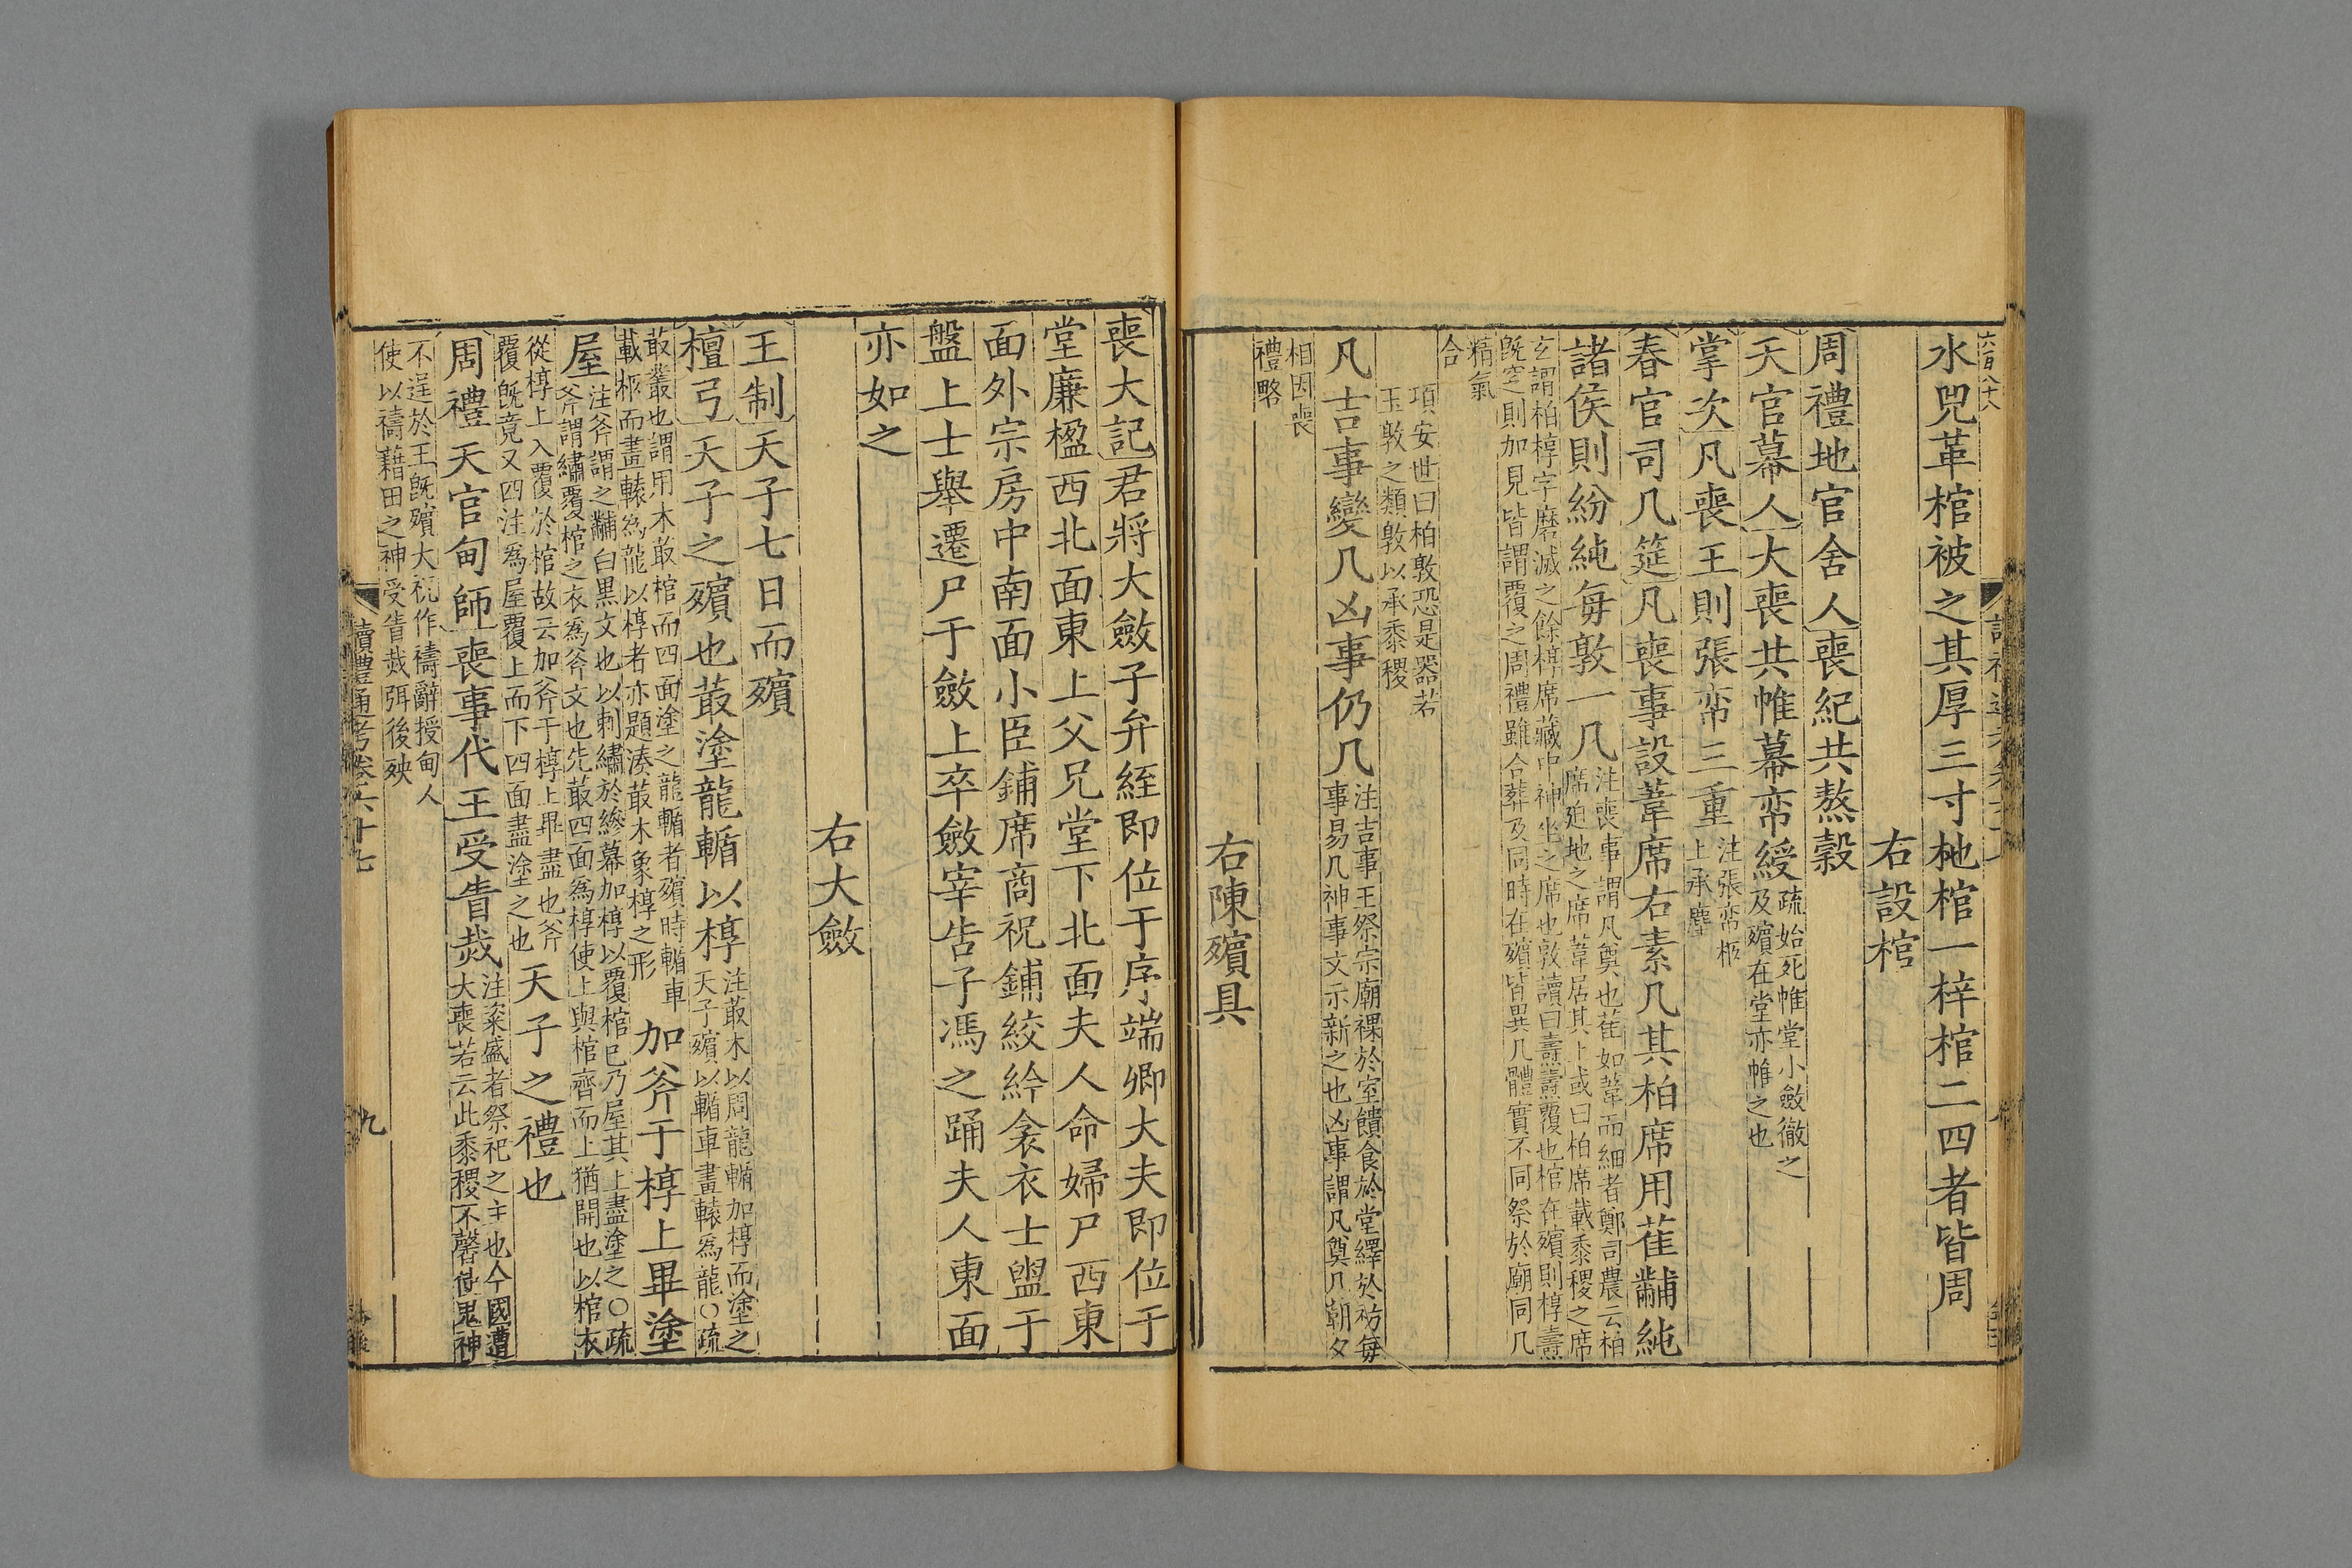 六百八十八
水兕革棺被之其厚三寸杝棺一梓棺二四者皆周
右設棺
周禮地官舍人喪紀共熬穀
天官幕人大喪共帷幕帟綬疏始死帷堂小斂徹之
及殯在堂亦帷之也
掌次凡喪王則張帟三重注張帟柩
上承塵
春官司几筵凡喪事設葦席右素几其柏席用萑黼純
諸侯則紛純每敦一几注喪事謂凡奠也萑如葦而細者鄭司農云柏
席迫地之席葦居其上或曰柏席載黍稷之席
玄謂柏椁字磨滅之餘椁席藏中神坐之席也敦讀曰燾燾覆也棺在殯則椁燾
旣窆則加見皆謂覆之周禮雖合葬及同時在殯皆異几體實不同祭於廟同几
精氣
合
項安世曰柏敦恐是器若
玉敦之類敦以承黍稷
凡吉事變几凶事仍几注吉事王祭宗廟祼於室饋食於堂繹於祊每
事易几神事文示新之也凶事謂凡奠几朝夕
相因喪
禮略
右陳殯具
喪大記君將大斂子弁絰即位于序端卿大夫即位于
堂廉楹西北面東上父兄堂下北面夫人命婦尸西東
面外宗房中南面小臣鋪席商祝鋪絞紟衾衣士盥于
盤上士舉遷尸于斂上卒斂宰告子馮之踊夫人東面
亦如之
右大斂
王制天子七日而殯
檀弓天子之殯也菆塗龍輴以椁注菆木以周龍輴加椁而塗之
天子殯以輴車畫轅爲龍○疏
菆叢也謂用木菆棺而四面塗之龍輴者殯時輴車
載柩而畫轅爲龍以椁者亦題湊菆木象椁之形
加斧于椁上畢塗
屋注斧謂之黼白黒文也以刺繡於縿幕加椁以覆棺已乃屋其上盡塗之○疏
斧謂繡覆棺之衣爲斧文也先菆四面爲椁使上與棺齊而上猶開也以棺衣
從椁上入覆於棺故云加斧于椁上畢盡也斧
覆旣竟又四注爲屋覆上而下四面盡塗之也
天子之禮也
周禮天官甸師喪事代王受眚烖注粢盛者祭祀之主也今國遭
大喪若云此黍稷不馨使鬼神
不逞於王旣殯大祝作禱辭授甸人
使以禱藉田之神受眚烖弭後殃
讀禮通考卷六十七
九